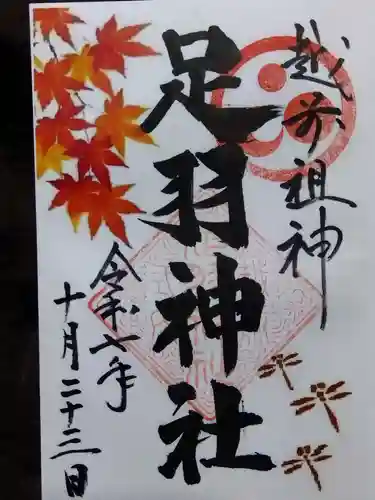 越前祖神
足羽神社
令和七年
十月二十三日